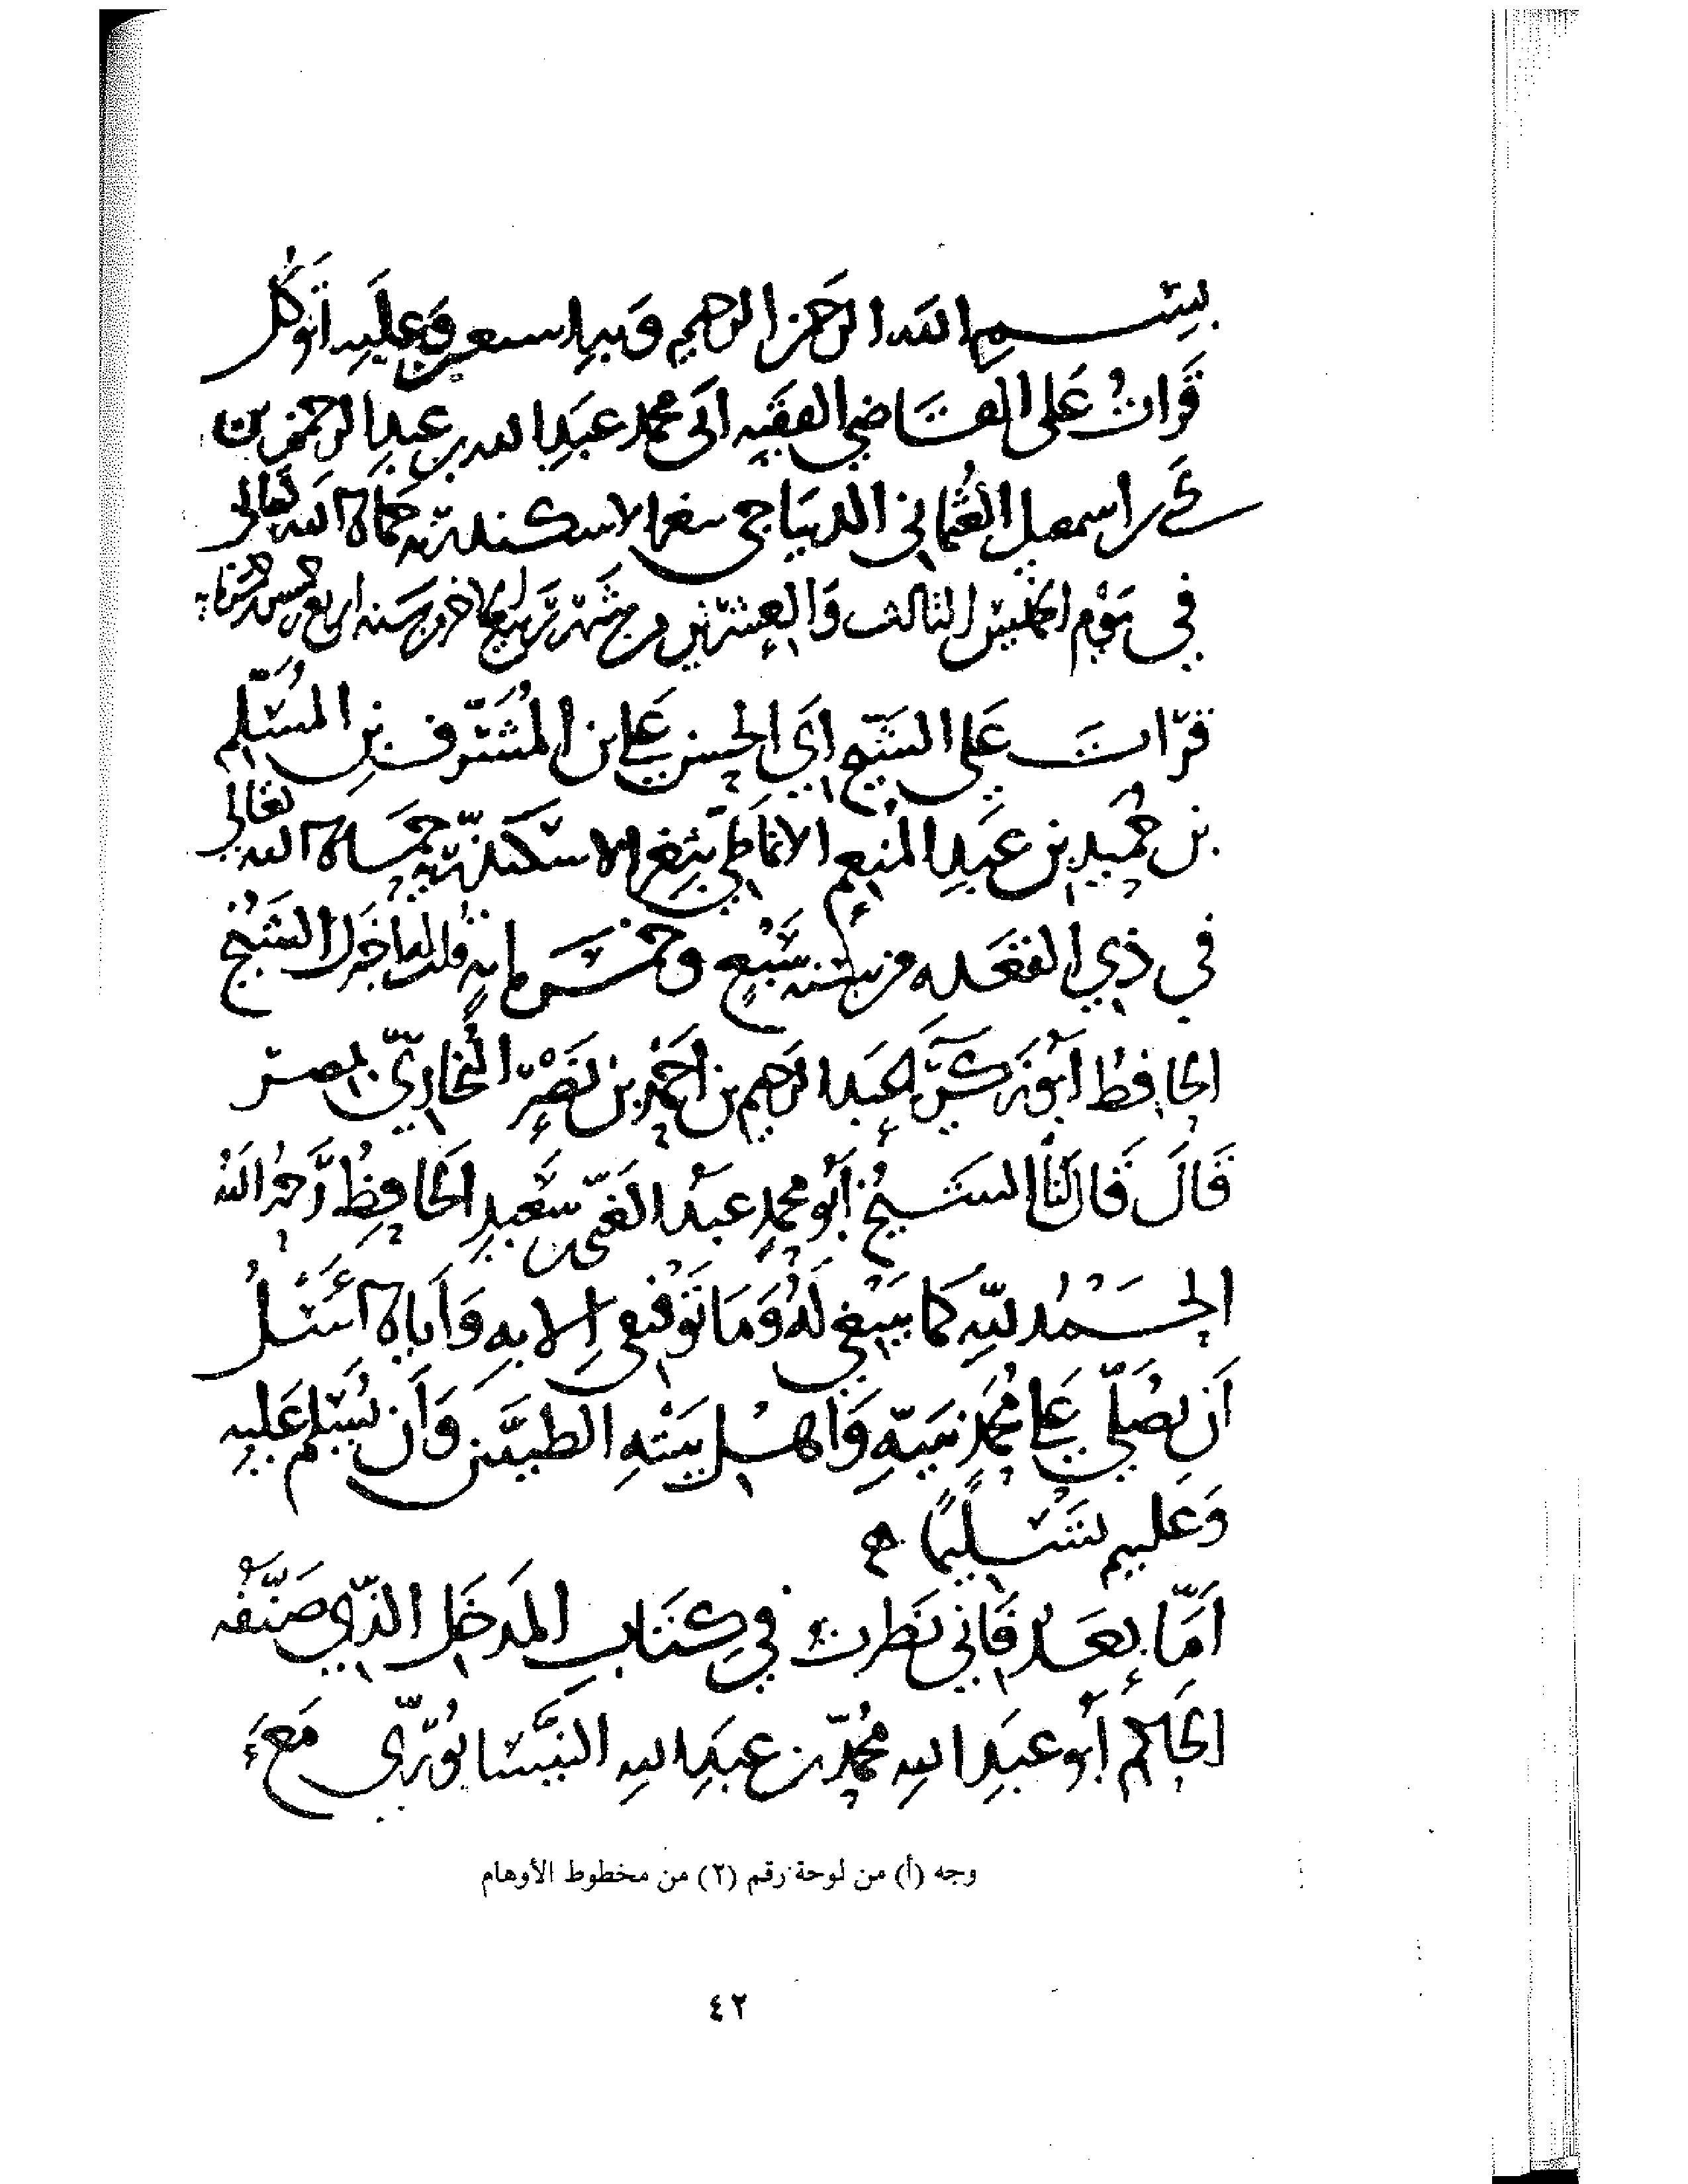 بسم الله الرحمن الرحيم وبه استعين وعليه اتوكل
قرات على القاضي الفقيه ابي محمد عبد الله بن عبد الرحمن بن
اسمعيل العثماني الديباجي بثغر الاسكندرية حماه الله تعالى
في يوم الخميس الثالث والعشرين من شهر ربيع الاخر من سنه اربع
قرات على الشيخ ابي الحسن علي بن المشرف بن المسلم
بن حميد بن عبد المنعم الانماطي بثغر الاسكندرية حماه الله تعالى
في ذي القعده من سنه سبع وخمس مايه قلت له اخبرك الشيخ
الحافظ أبو زكريا عبد الرحيم بن أحمد بن نصر البخاري بمصر
قال قال لنا الشيخ أبو محمد عبد الغني بن سعيد الحافظ رحمه الله
الحمد لله كما ينبغي له وما توفيقي الا به واياه أسئل
أن يصلي على محمد نبيه واهل بيته الطيبين وأن يسلم عليه
وعليهم تسليما
أما بعد فاني نظرت في كتاب المدخل الذي صنفه
الحاكم أبو عبد الله محمد بن عبد الله النيسابوري
وجه (أ) من لوحة رقم (٢) من مخطوط الأوهام
٤٢